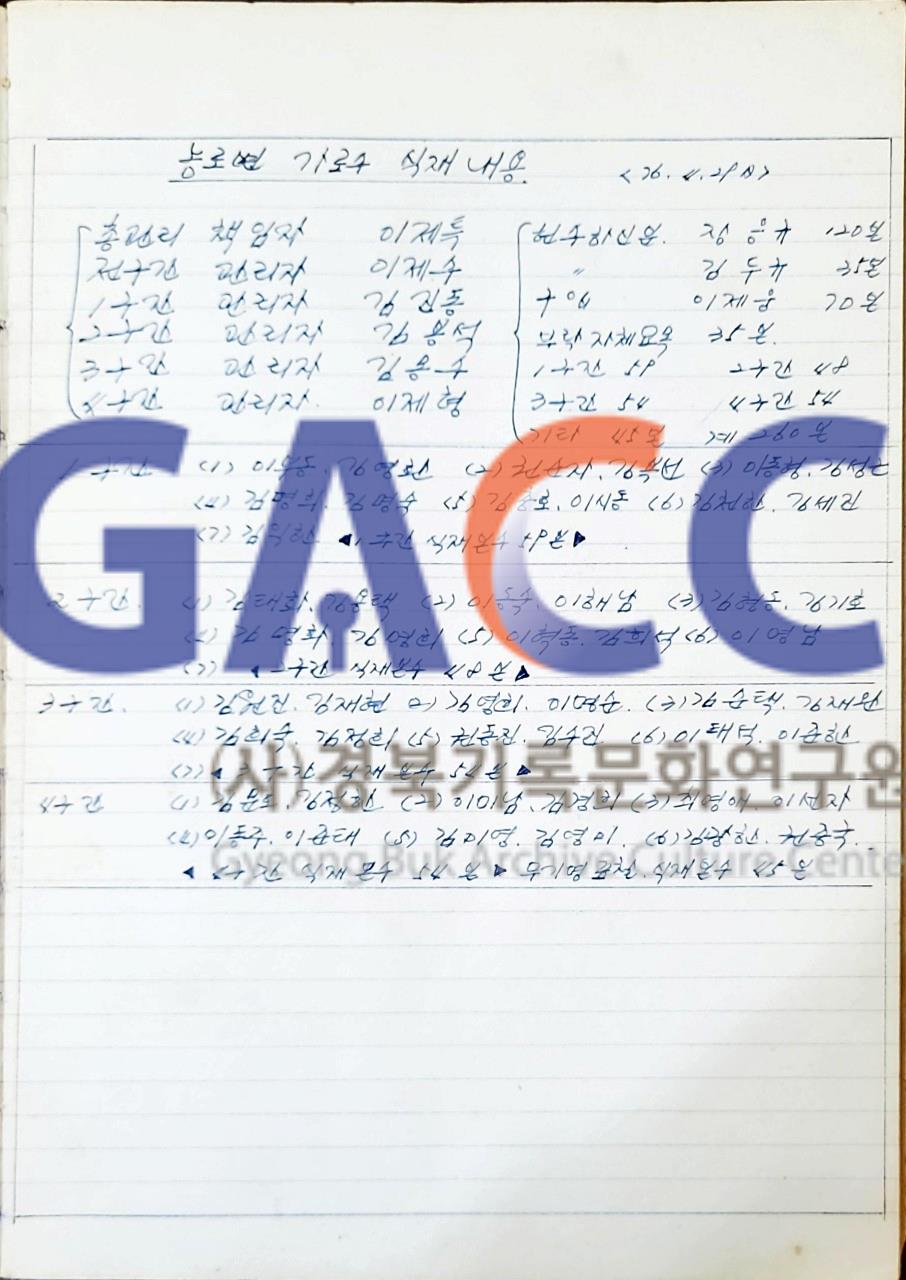 농로변 가로수 식재내용
<76. 4. 29日>
총관리 책임자 이제특
전구간 관리자 이제수
1구간 관리자 김진동
2구간 관리자 김용석
3구간 관리자 김용수
4구간 관리자 이제형
헌수하신분. 장응규 120본
〃 김두규 35본
구입 이제웅 70본
부락자체묘목 35본.
1구간 59 2구간 48
3구간 54 4구간 54
기타 45본 계 260본
1구간 (1) 이 동. 김영 (2) 천순자. 김복 (3) 이동형. 김성
(4) 김명희. 김명숙 (5) 김 호. 이시동 (6) 김천한. 김세진
(7) 김 한 ◀1구간 식재본수 59본▶
2구간. (1) 김태화. 김용택 (2) 이동수. 이해남 (3) 김현동. 김기호
(4) 김명화. 김영희 (5) 이혁동. 김희석 (6) 이영남
(7) ◀2구간 식재본수 48본▶
3구간. (1) 김원진. 김재현 (2) 김영희. 이명순. (3) 김순택. 김재원
(4) 김희숙. 김정희 (5) 천동진. 김수진 (6) 이태덕. 이춘한
(7) ◀3구간 식재본수 54본▶
(사)경북기록문화연구원
4구간 (1) 김운도. 김정한 (2) 이미남. 김경희 (3) 최영애. 이선자
(4) 이동주. 이춘태 (5) 김미영. 김영미. (6) 김광한. 천중국.
Gyeong Buk Archive Culture Center
◀4구간 식재본수 54본▶ 식재본수 45본
GACC